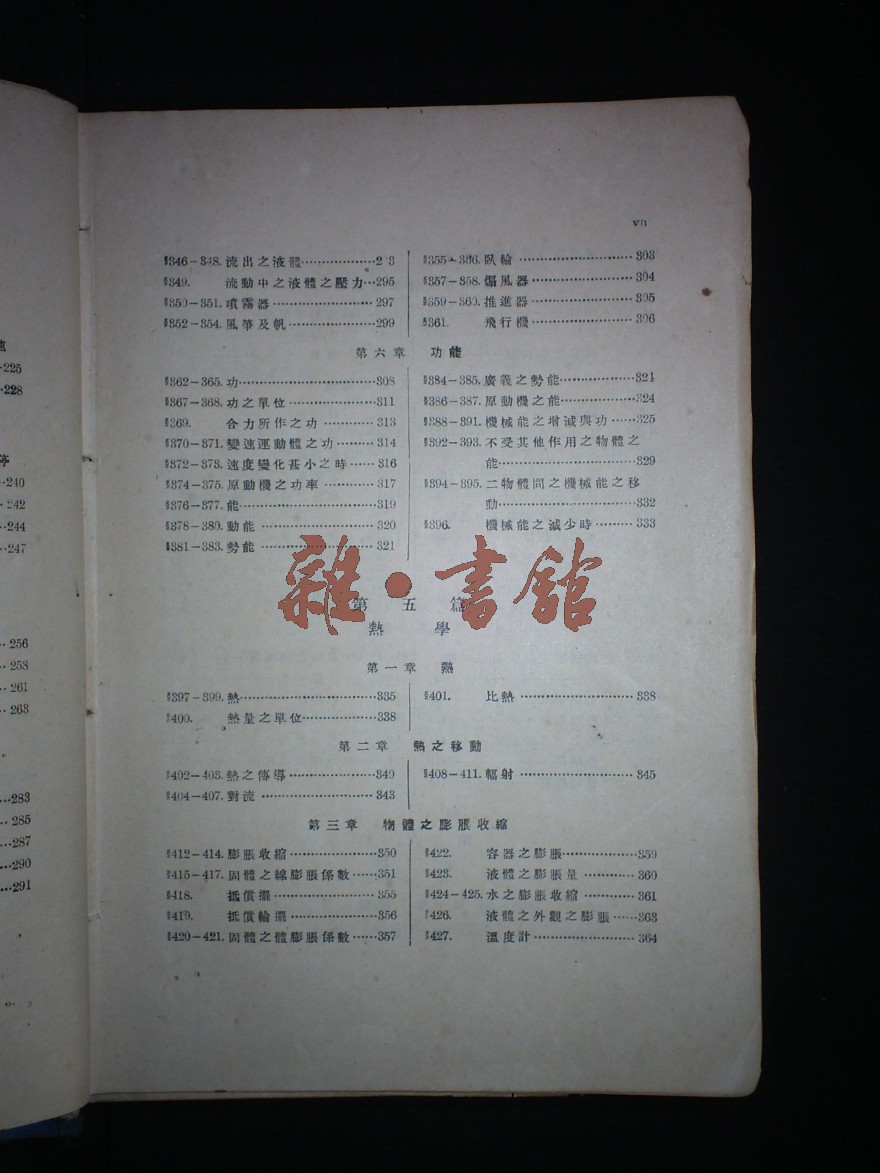 vii
§346–348. 流出之液體
§349. 流動中之液體之壓力 295
§350–351. 噴霧器 297
§352–354. 風箏及帆 299
§355–356. 臥輪 303
§357–358. 煽風器 304
§359–360. 推進器 305
§361. 飛行機 306
第六章 功能
§362–365. 功 308
§367–368. 功之單位 311
§369. 合力所作之功 313
§370–371. 變速運動體之功 314
§372–373. 速度變化甚小之時 316
§374–375. 原動機之功率 317
§376–377. 能 319
§378–380. 動能 320
§381–383. 勢能 321
§384–385. 廣義之勢能 321
§386–387. 原動機之能 324
§388–391. 機械能之增減與功 325
§392–393. 不受其他作用之物體之
能 329
§394–395. 二物體間之機械能之移
動 332
§396. 機械能之減少時 333
雜·書館
第五篇
熱學
第一章 熱
§397–399. 熱 335
§400. 熱量之單位 338
§401. 比熱 338
第二章 熱之移動
§402–403. 熱之傳導 340
§404–407. 對流 343
§408–411. 輻射 345
第三章 物體之膨脹收縮
§412–414. 膨脹收縮 350
§415–417. 固體之線膨脹係數 351
§418. 抵償擺 355
§419. 抵償輪擺 356
§420–421. 固體之體膨脹係數 357
§422. 容器之膨脹 359
§423. 液體之膨脹量 360
§424–425. 水之膨脹收縮 361
§426. 液體之外觀之膨脹 363
§427. 溫度計 364
225
228
240
242
244
247
256
258
261
263
283
285
287
290
291